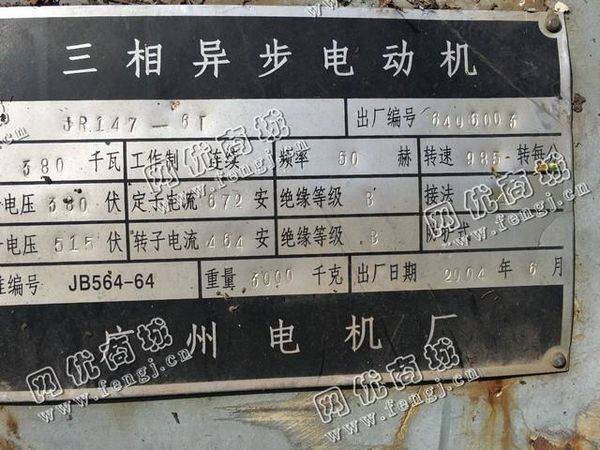 三相异步电动机
JR147-6T 出厂编号 6406003
380 千瓦 工作制 连续 频率 50 赫 转速 985 转每分
电压 380 伏 定子电流 672 安 绝缘等级 B 接法
电压 515 伏 转子电流 464 安 绝缘等级 B 防护式
准编号 JB564-64 重量 3000 千克 出厂日期 2004 年 6 月
杭州电机厂
网优商城
www.fengj.cn
网优商城
www.fengj.cn
网优商城
www.fengj.cn
网优商城
www.fengj.cn
网优商城
www.fengj.cn
网优商城
www.fengj.cn